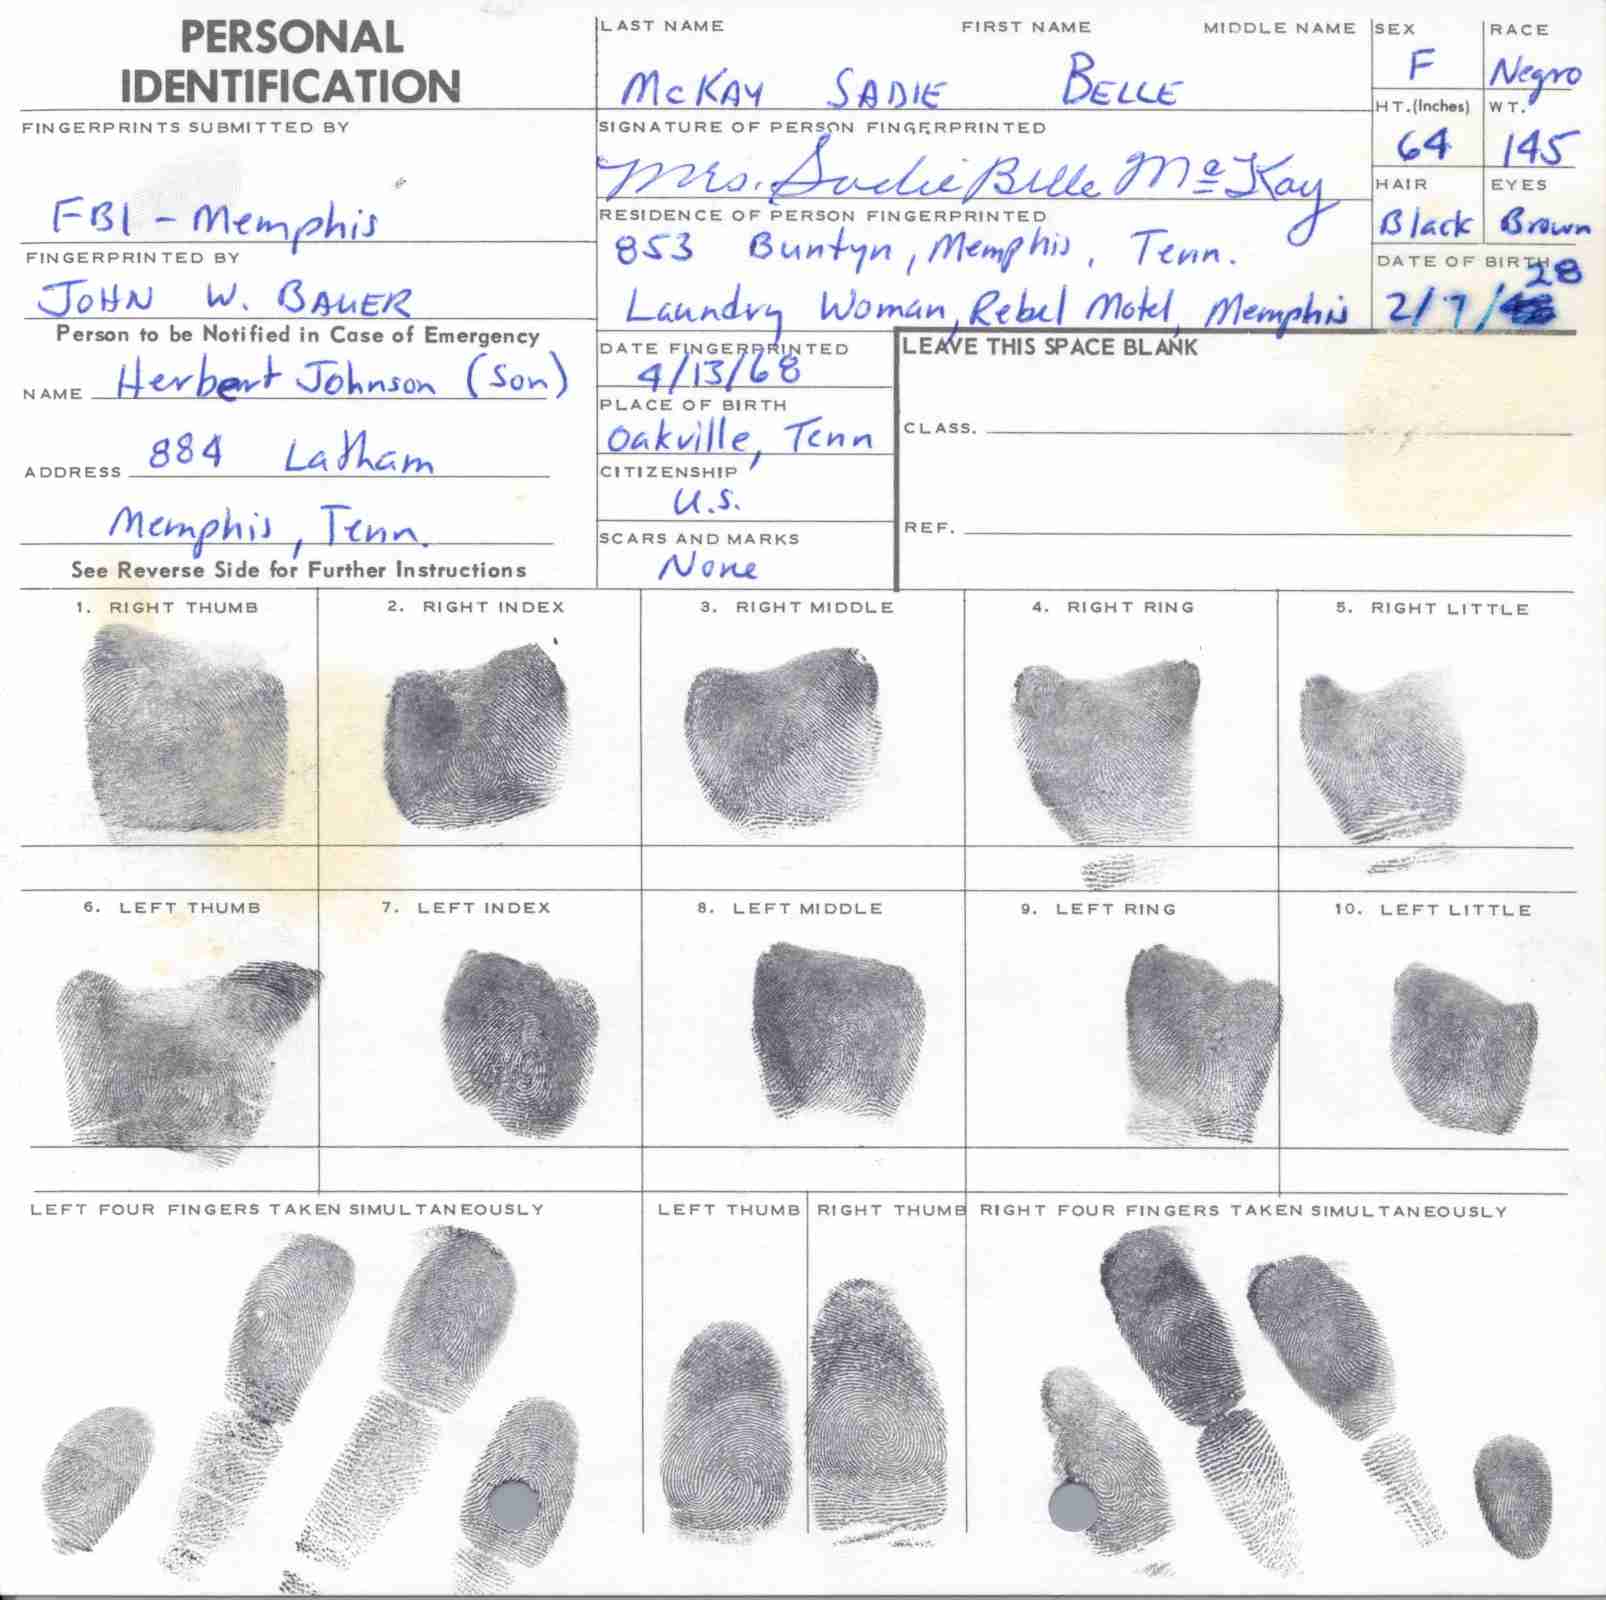 PERSONAL
IDENTIFICATION
LAST NAME FIRST NAME MIDDLE NAME
McKAY SADIE BELLE
SEX
F
RACE
Negro
HT.(Inches)
64
WT.
145
HAIR
Black
EYES
Brown
DATE OF BIRTH
2/7/28
FINGERPRINTS SUBMITTED BY
FBI - Memphis
FINGERPRINTED BY
JOHN W. BAUER
SIGNATURE OF PERSON FINGERPRINTED
Mrs. Sadie Belle McKay
RESIDENCE OF PERSON FINGERPRINTED
853 Buntyn, Memphis, Tenn.
Laundry Woman, Rebel Motel, Memphis
Person to be Notified in Case of Emergency
NAME Herbert Johnson (Son)
ADDRESS 884 Latham
Memphis, Tenn.
See Reverse Side for Further Instructions
DATE FINGERPRINTED
4/13/68
PLACE OF BIRTH
Oakville, Tenn
CITIZENSHIP
U.S.
SCARS AND MARKS
None
LEAVE THIS SPACE BLANK
CLASS.
REF.
1. RIGHT THUMB 2. RIGHT INDEX 3. RIGHT MIDDLE 4. RIGHT RING 5. RIGHT LITTLE
6. LEFT THUMB 7. LEFT INDEX 8. LEFT MIDDLE 9. LEFT RING 10. LEFT LITTLE
LEFT FOUR FINGERS TAKEN SIMULTANEOUSLY LEFT THUMB RIGHT THUMB RIGHT FOUR FINGERS TAKEN SIMULTANEOUSLY